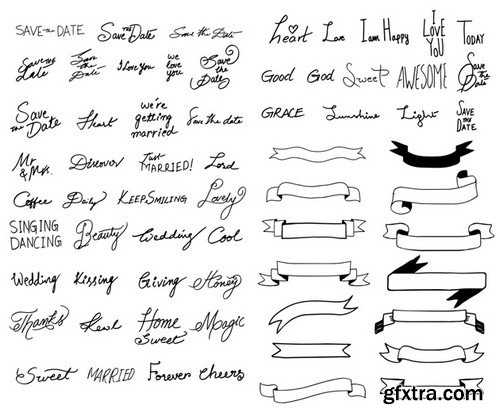 SAVE THE DATE Save the Date Save the Date
Save the Date Save the Date I love You we love you Save the Date
Save the Date Heart we're getting married Save the date
Mr & Mrs. Discover Just MARRIED! Lord
Coffee Daily KEEP SMILING Lovely
SINGING DANCING Beauty Wedding Cool
Wedding Kissing Giving Honey
Thanks Home Sweet Magic
Sweet MARRIED Forever Cheers
heart Love I am Happy I LOVE YOU TODAY
GOOD GOD Sweet AWESOME Save the Date
GRACE Sunshine Light SAVE THE DATE
gfxtra.com